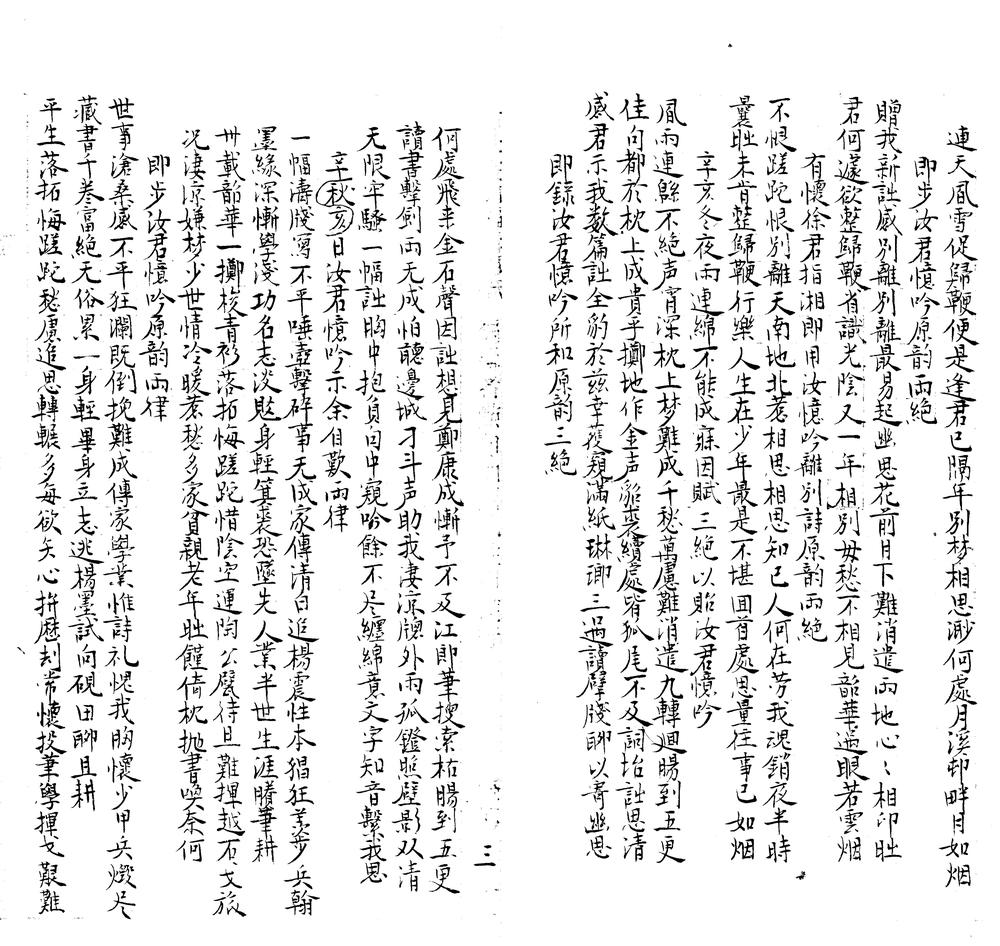 連天風雪促歸鞭便是逢君已隔年別梦相思渺何處月溪邨畔月如烟
即步汝君憶吟原韵兩絶
贈我新詩感別離別離最易起幽思花前月下難消遣兩地心〻相印眡
君何遽欲整歸鞭省識光陰又一年相別毋愁不相見韶華過眼若雲烟
有懷徐君指湘即用汝憶吟離別詩原韵兩絶
不恨蹉跎恨別離天南地北惹相思相思知己人何在芳我魂銷夜半時
曩眡未肯整歸鞭行樂人生在少年最是不堪囬首處思量往事已如烟
辛亥冬夜雨連綿不能成寐因賦三絶以貽汝君憶吟
風雨連緜不絶声宵深枕上梦難成千愁萬慮難消遣九轉廻腸到五更
佳句都於枕上成貴乎擲地作金声貂裘續處皆狐尾不及詞坮詩思清
感君示我数篇詩全豹於兹幸獲窺滿紙琳瑯三過讀擘牋聊以寄幽思
即録汝君憶吟所和原韵三絶
三
何處飛来金石聲因詩想見鄭康成慚予不及江即筆搜索枯腸到五更
讀書擊劍兩无成怕聽邊城刁斗声助我凄凉牕外雨孤鐙眡壁影双清
无限牢騷一幅詩胸中抱負句中窺吟餘不尽纏綿意文字知音繫我思
辛秋亥日汝君憶吟示余自歎兩律
一幅濤牋寫不平唾壺擊碎事天成家傳清白追楊震性本猖狂羡步兵翰
墨緣深慚學淺功名志淡贱身輕箕裘恐墜先人業半世生涯賸筆耕
卅載韶華一擲梭青衫落拓悔蹉跎惜陰空運陶公甓待旦難揮越石戈旅
况淒凉嫌梦少世情冷暖惹愁多家貧親老年眡饉倚枕抛書喚奈何
即步汝君憶吟原韵兩律
世事滄桑感不平狂瀾既倒挽難成傳家學業惟詩礼愧我胸懷少甲兵燬尽
藏書千卷富絶无俗累一身輕畢身立志逃楊墨試向硯田聊且耕
平生落拓悔蹉跎愁慮追思轉輾多每欲矢心拚歷刦常懷投筆學揮戈艱難